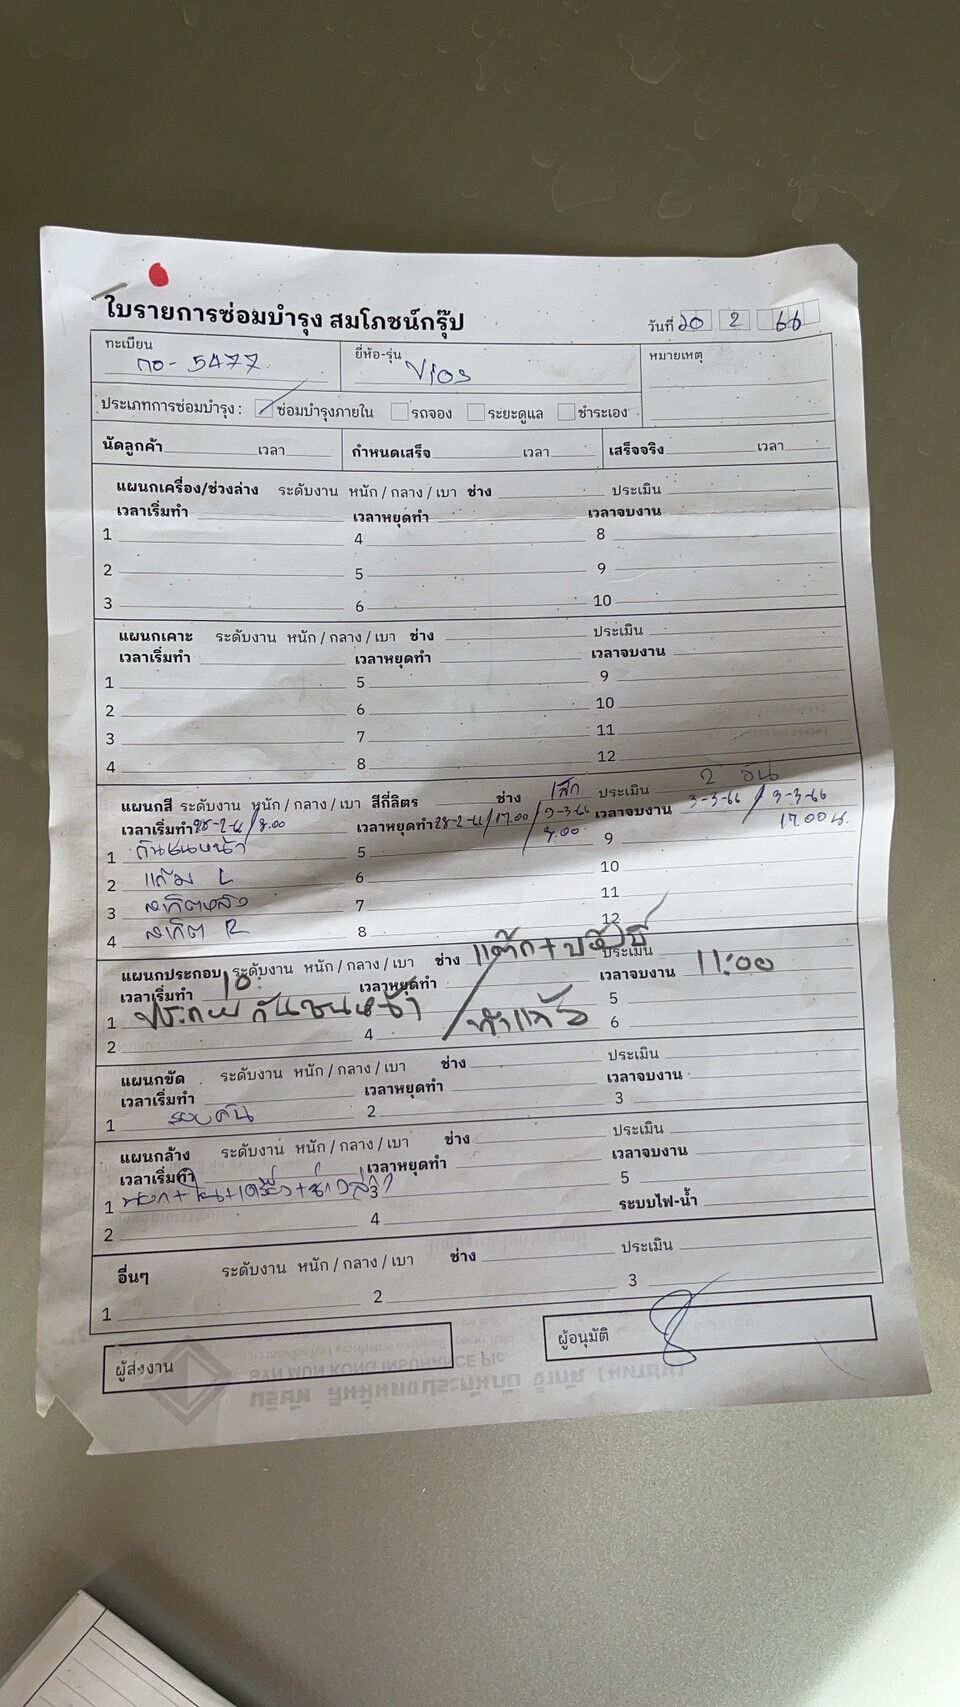 ใบรายการซ่อมบำรุง สมโภชน์กรุ๊ป
วันที่ 20 2 66
ทะเบียน กอ - 5477
ยี่ห้อ-รุ่น Vios
หมายเหตุ
ประเภทการซ่อมบำรุง : ซ่อมบำรุงภายใน รถจอง ระยะดูแล ชำระเอง
นัดลูกค้า เวลา กำหนดเสร็จ เวลา เสร็จจริง เวลา
แผนกเครื่อง/ช่วงล่าง ระดับงาน หนัก / กลาง / เบา ช่าง ประเมิน
เวลาเริ่มทำ เวลาหยุดทำ เวลาจบงาน
1 4 8
2 5 9
3 6 10
แผนกเคาะ ระดับงาน หนัก / กลาง / เบา ช่าง ประเมิน
เวลาเริ่มทำ เวลาหยุดทำ เวลาจบงาน
1 5 9
2 6 10
3 7 11
4 8 12
แผนกสี ระดับงาน หนัก / กลาง / เบา สีกี่ลิตร ช่าง เสก ประเมิน 2 วัน
เวลาเริ่มทำ 28-2-66/8.00 เวลาหยุดทำ 28-2-66/17.00 / เวลาจบงาน 3-3-66 / 3-3-66
8.00 17.00 น.
1 กันชนหน้า 5 9
2 แก้ม L 6 10
3 7 11
4 R 8 12
แผนกประกอบ ระดับงาน หนัก / กลาง / เบา ช่าง ประเมิน
เวลาเริ่มทำ 10 เวลาหยุดทำ เวลาจบงาน 11:00
1 ประกอบกันชนหน้า 5
2 4 6
แผนกขัด ระดับงาน หนัก / กลาง / เบา ช่าง ประเมิน
เวลาเริ่มทำ เวลาหยุดทำ เวลาจบงาน
1 รอบคัน 2 3
แผนกล้าง ระดับงาน หนัก / กลาง / เบา ช่าง ประเมิน
เวลาเริ่มทำ เวลาหยุดทำ เวลาจบงาน
1 นอก+ใน+เครื่อง+ช่วงล่าง 3 5
2 4 ระบบไฟ-น้ำ
อื่นๆ ระดับงาน หนัก / กลาง / เบา ช่าง ประเมิน
1 2 3
ผู้ส่งงาน
ผู้อนุมัติ